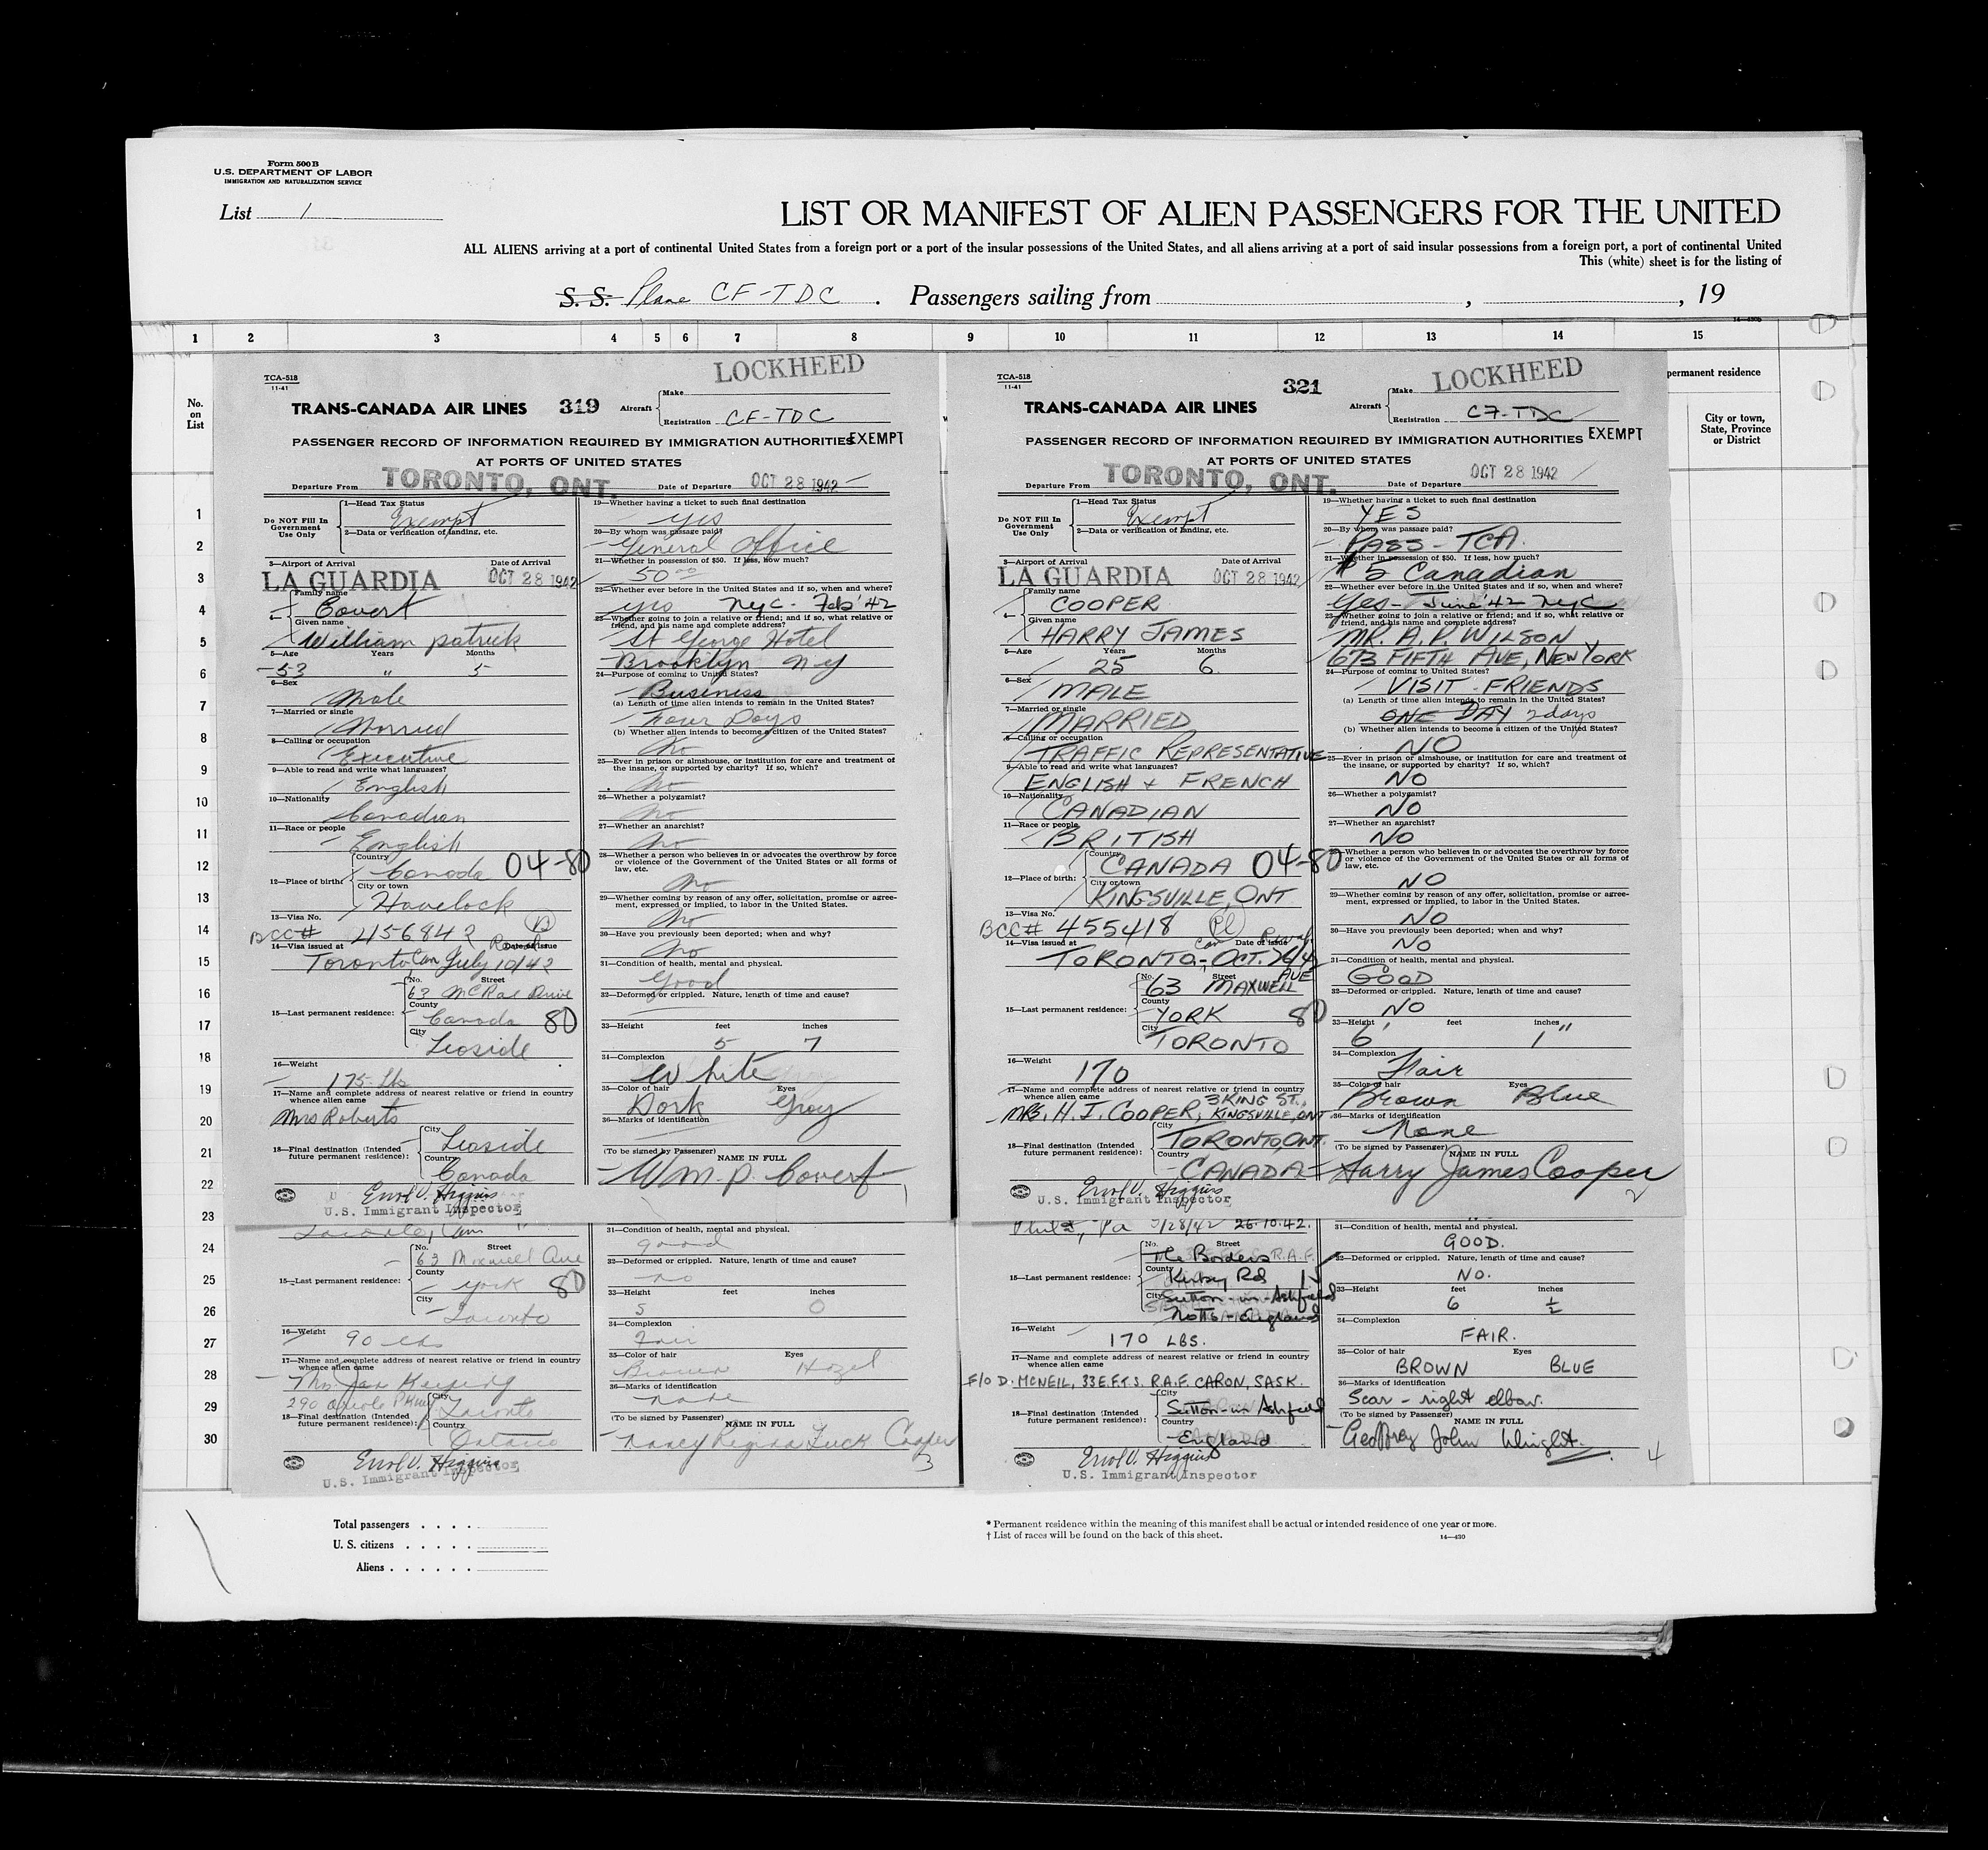 Form 500 B
U.S. DEPARTMENT OF LABOR
IMMIGRATION AND NATURALIZATION SERVICE
List 1
LIST OR MANIFEST OF ALIEN PASSENGERS FOR THE UNITED
ALL ALIENS arriving at a port of continental United States from a foreign port or a port of the insular possessions of the United States, and all aliens arriving at a port of said insular possessions from a foreign port, a port of continental United
This (white) sheet is for the listing of
S. S. Plane CF-TDC . Passengers sailing from , , 19
1 2 3 4 5 6 7 8 9 10 11 12 13 14 15
No. on List
permanent residence
City or town, State, Province or District
1
2
3
4
5
6
7
8
9
10
11
12
13
14
15
16
17
18
19
20
21
22
23
24
25
26
27
28
29
30
TCA-518
11-41
LOCKHEED
TRANS-CANADA AIR LINES 319 Aircraft Make
Registration CF-TDC
PASSENGER RECORD OF INFORMATION REQUIRED BY IMMIGRATION AUTHORITIES EXEMPT
AT PORTS OF UNITED STATES
Departure From TORONTO, ONT. Date of Departure OCT 28 1942
Do NOT Fill In Government Use Only
1—Head Tax Status
Exempt
2—Data or verification of landing, etc.
3—Airport of Arrival Date of Arrival
LA GUARDIA OCT 28 1942
4— Family name
Covert
Given name
William Patrick
5—Age Years Months
53 " 5
6—Sex
Male
7—Married or single
Married
8—Calling or occupation
Executive
9—Able to read and write what languages?
English
10—Nationality
Canadian
11—Race or people
English
12—Place of birth: Country
Canada 04-80
City or town
Havelock
13—Visa No.
BCC# 4156842
14—Visa issued at Date of issue
Toronto Can July 10/42
15—Last permanent residence: No. Street
63 McRae Drive
County
Canada 80
City
Leaside
16—Weight
175 lbs
17—Name and complete address of nearest relative or friend in country whence alien came
Mrs Roberts
18—Final destination (Intended future permanent residence): City
Leaside
Country
Canada
Errol V. Higgins
U.S. Immigrant Inspector
19—Whether having a ticket to such final destination
yes
20—By whom was passage paid?
General Office
21—Whether in possession of $50. If less, how much?
50 00
22—Whether ever before in the United States and if so, when and where?
yes NYC - Feb '42
23—Whether going to join a relative or friend; and if so, what relative or friend, and his name and complete address?
St George Hotel
Brooklyn N-y
24—Purpose of coming to United States?
Business
(a) Length of time alien intends to remain in the United States?
Four Days
(b) Whether alien intends to become a citizen of the United States?
No
25—Ever in prison or almshouse, or institution for care and treatment of the insane, or supported by charity? If so, which?
No
26—Whether a polygamist?
No
27—Whether an anarchist?
No
28—Whether a person who believes in or advocates the overthrow by force or violence of the Government of the United States or all forms of law, etc.
No
29—Whether coming by reason of any offer, solicitation, promise or agreement, expressed or implied, to labor in the United States.
No
30—Have you previously been deported; when and why?
No
31—Condition of health, mental and physical.
Good
32—Deformed or crippled. Nature, length of time and cause?
33—Height feet inches
5 7
34—Complexion
White
35—Color of hair Eyes
Dark Gray
36—Marks of identification
(To be signed by Passenger) NAME IN FULL
Wm. P. Covert
1
TCA-518
11-41
321
LOCKHEED
TRANS-CANADA AIR LINES Aircraft Make
Registration C7-TDC
PASSENGER RECORD OF INFORMATION REQUIRED BY IMMIGRATION AUTHORITIES EXEMPT
AT PORTS OF UNITED STATES
Departure From TORONTO, ONT. Date of Departure OCT 28 1942
Do NOT Fill In Government Use Only
1—Head Tax Status
Exempt
2—Data or verification of landing, etc.
3—Airport of Arrival Date of Arrival
LA GUARDIA OCT 28 1942
4— Family name
COOPER
Given name
HARRY JAMES
5—Age Years Months
25 6
6—Sex
MALE
7—Married or single
MARRIED
8—Calling or occupation
TRAFFIC REPRESENTATIVE
9—Able to read and write what languages?
ENGLISH + FRENCH
10—Nationality
CANADIAN
11—Race or people
BRITISH
12—Place of birth: Country
CANADA 04-80
City or town
KINGSVILLE, ONT
13—Visa No.
BCC# 455418
14—Visa issued at Date of issue
TORONTO, Can OCT. 26/42
15—Last permanent residence: No. Street
63 MAXWELL AVE
County
YORK 80
City
TORONTO
16—Weight
170
17—Name and complete address of nearest relative or friend in country whence alien came
MRS. H. J. COOPER, 3 KING ST., KINGSVILLE, ONT
18—Final destination (Intended future permanent residence): City
TORONTO, ONT.
Country
CANADA
Errol V. Higgins
U.S. Immigrant Inspector
19—Whether having a ticket to such final destination
YES
20—By whom was passage paid?
PASS - TCA.
21—Whether in possession of $50. If less, how much?
$5 Canadian
22—Whether ever before in the United States and if so, when and where?
Yes - June '42 NYC
23—Whether going to join a relative or friend; and if so, what relative or friend, and his name and complete address?
MR. A. P. WILSON
673 FIFTH AVE, NEW YORK
24—Purpose of coming to United States?
VISIT FRIENDS
(a) Length of time alien intends to remain in the United States?
ONE DAY 2 days
(b) Whether alien intends to become a citizen of the United States?
NO
25—Ever in prison or almshouse, or institution for care and treatment of the insane, or supported by charity? If so, which?
NO
26—Whether a polygamist?
NO
27—Whether an anarchist?
NO
28—Whether a person who believes in or advocates the overthrow by force or violence of the Government of the United States or all forms of law, etc.
NO
29—Whether coming by reason of any offer, solicitation, promise or agreement, expressed or implied, to labor in the United States.
NO
30—Have you previously been deported; when and why?
NO
31—Condition of health, mental and physical.
GOOD
32—Deformed or crippled. Nature, length of time and cause?
NO
33—Height feet inches
6' 1"
34—Complexion
Fair
35—Color of hair Eyes
Brown Blue
36—Marks of identification
None
(To be signed by Passenger) NAME IN FULL
Harry James Cooper
2
15—Last permanent residence: No. Street
63 Maxwell Ave
County
York 80
City
Toronto
16—Weight
90 lbs
17—Name and complete address of nearest relative or friend in country whence alien came
290 Oriole Pkwy
18—Final destination (Intended future permanent residence): City
Toronto
Country
Ontario
Errol V. Higgins
U.S. Immigrant Inspector
31—Condition of health, mental and physical.
good
32—Deformed or crippled. Nature, length of time and cause?
no
33—Height feet inches
5 0
34—Complexion
Fair
35—Color of hair Eyes
Brown Hazel
36—Marks of identification
none
(To be signed by Passenger) NAME IN FULL
Nancy Regina Luck Cooper
3
Phila, Pa 5/28/42 26.10.42.
15—Last permanent residence: No. Street
The Borders
County
Kirby Rd
City
Sutton-in-Ashfield
Notts - England
16—Weight
170 LBS.
17—Name and complete address of nearest relative or friend in country whence alien came
F/O D. MCNEIL, 33 E.F.T.S. R.A.F. CARON, SASK.
18—Final destination (Intended future permanent residence): City
Sutton-in Ashfield
Country
England
Errol V. Higgins
U.S. Immigrant Inspector
31—Condition of health, mental and physical.
GOOD.
32—Deformed or crippled. Nature, length of time and cause?
NO.
33—Height feet inches
6 ½
34—Complexion
FAIR.
35—Color of hair Eyes
BROWN BLUE
36—Marks of identification
Scar - right elbow.
(To be signed by Passenger) NAME IN FULL
Geoffrey John Wright.
4
Total passengers . . . .
U. S. citizens . . . . .
Aliens . . . . . .
* Permanent residence within the meaning of this manifest shall be actual or intended residence of one year or more.
† List of races will be found on the back of this sheet.
14—430